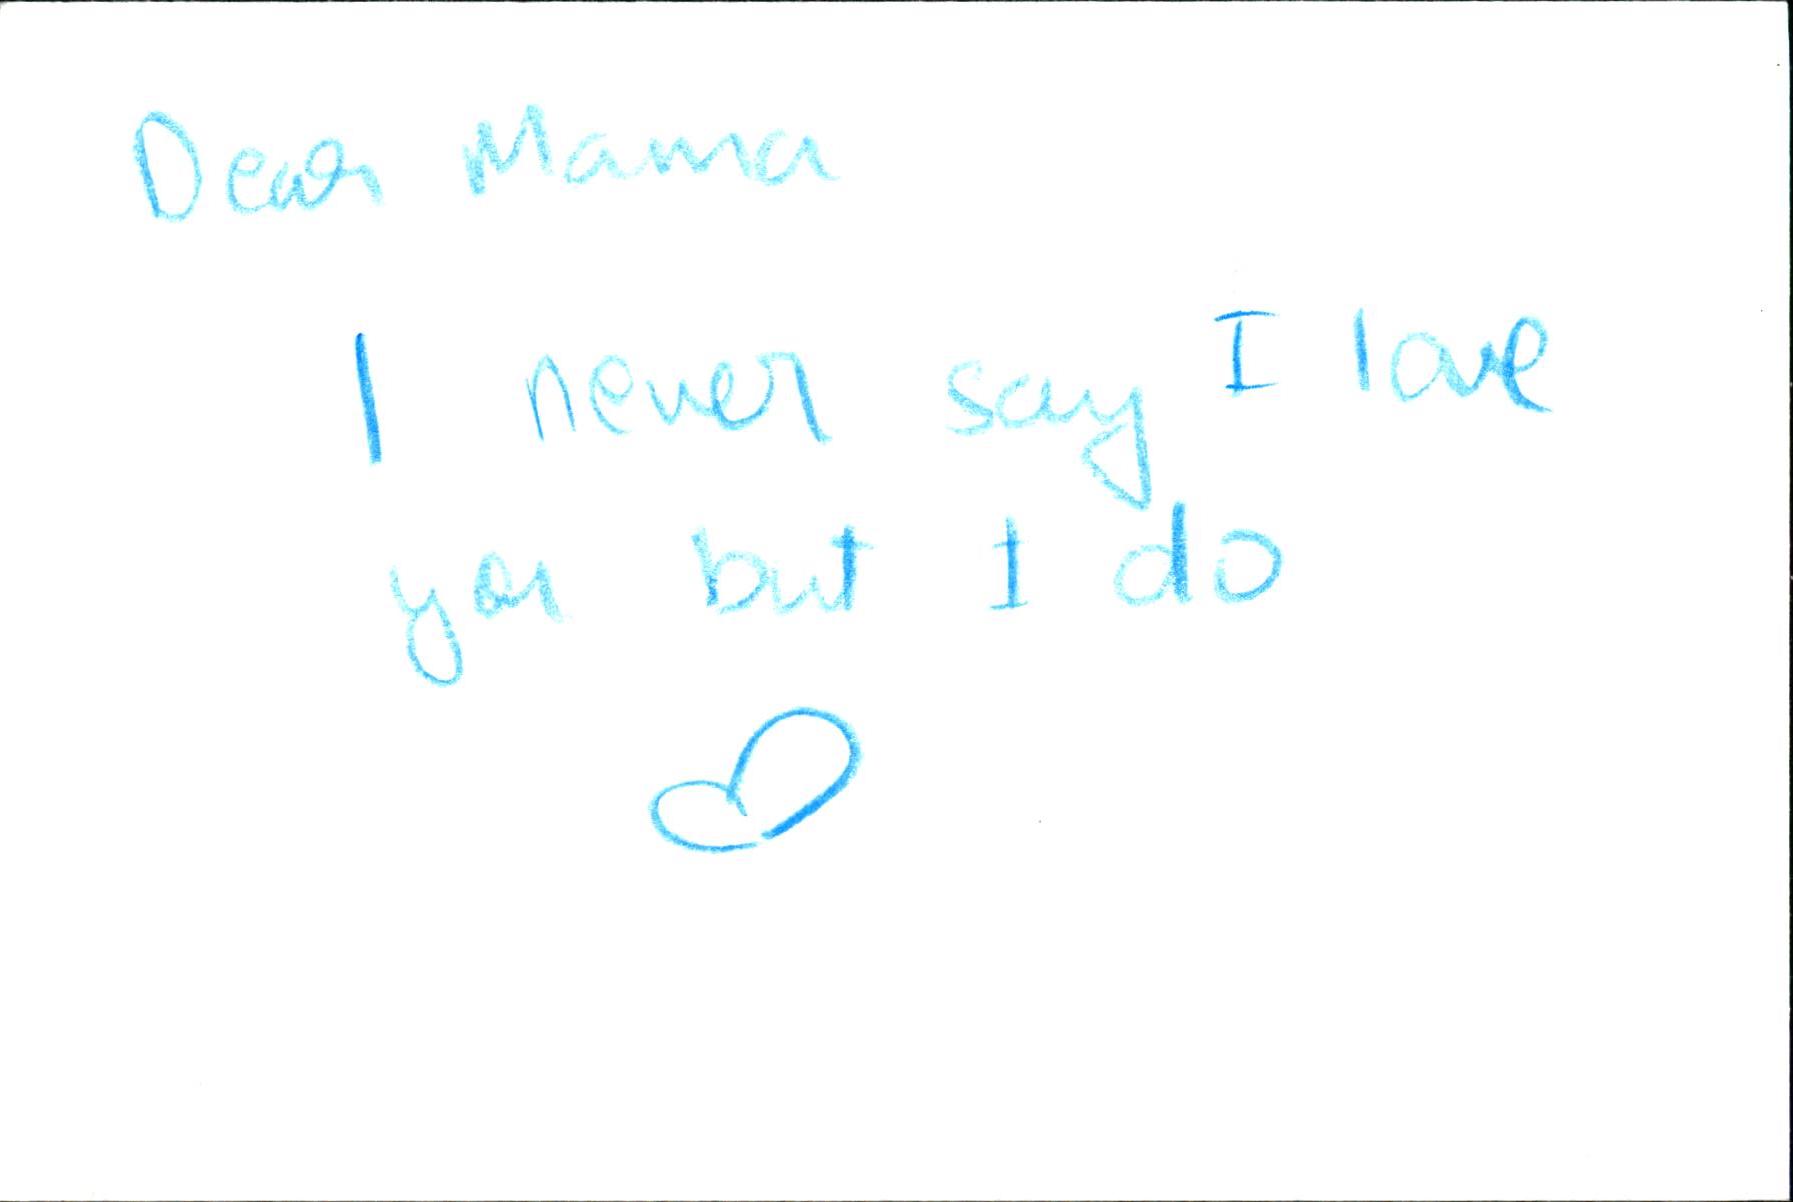 Dear Mama
I never say I love
you but I do